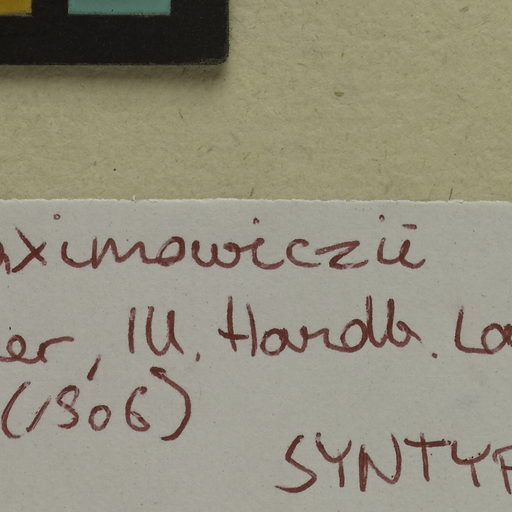 aximowiczii
er, Ill. Handb. La
(1906)
SYNTYP